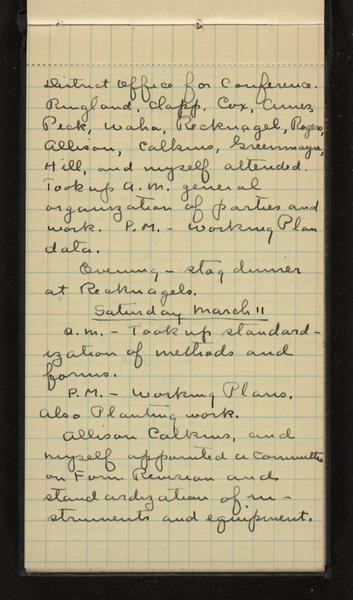 District Office for Conference.
Ringland, Clapp, Cox, Ames,
Peck, Waha, Recknagel, Rogers,
Allison, Calkins, Greenmayre,
Hill, and myself attended.
Took up A.M. general
organization of parties and
work. P.M. - Working Plan
data.
Evening - stag dinner
at Recknagels.
Saturday March 11
a.m. - Took up standard-
ization of methods and
forms.
P.M. - Working Plans.
Also Planting work.
Allison Calkins, and
myself appointed a committee
on Form Revision and
standardization of in-
struments and equipment.